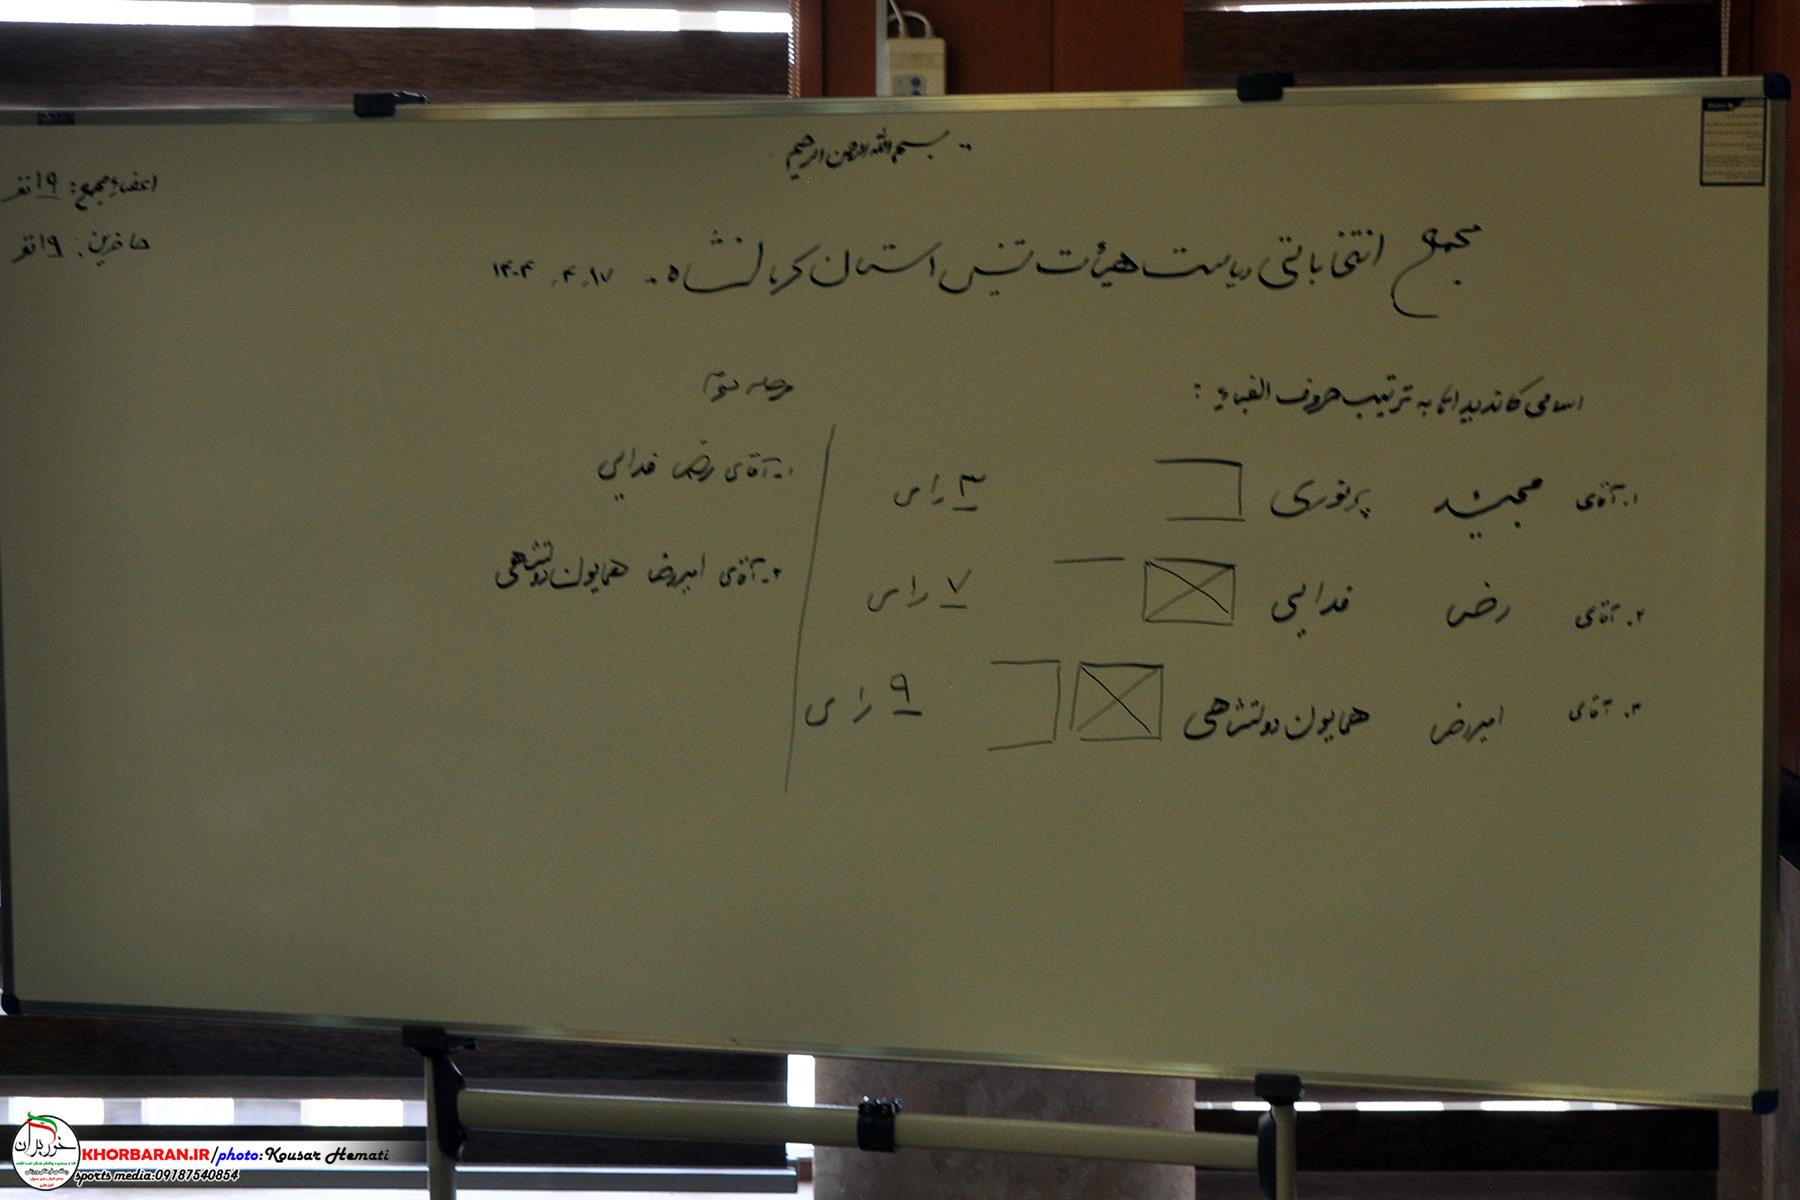 بسم الله الرحمن الرحیم
اعضاء مجمع: ۱۹ نفر
حاضرین: ۱۹ نفر
مجمع انتخاباتی ریاست هیأت تنیس استان کرمانشاه - ۱۴۰۴.۴.۱۷
اسامی کاندیداها به ترتیب حروف الفباء:
۱. آقای جمشید پرنوری ۳ رای
۲. آقای رضا فدایی ۷ رای
۳. آقای امیررضا همایون دولتشاهی ۹ رای
مرحله دوم
۱- آقای رضا فدایی
۲- آقای امیررضا همایون دولتشاهی
خوربران
KHORBARAN.IR/photo:Kousar Hemati
sports media:09187540854